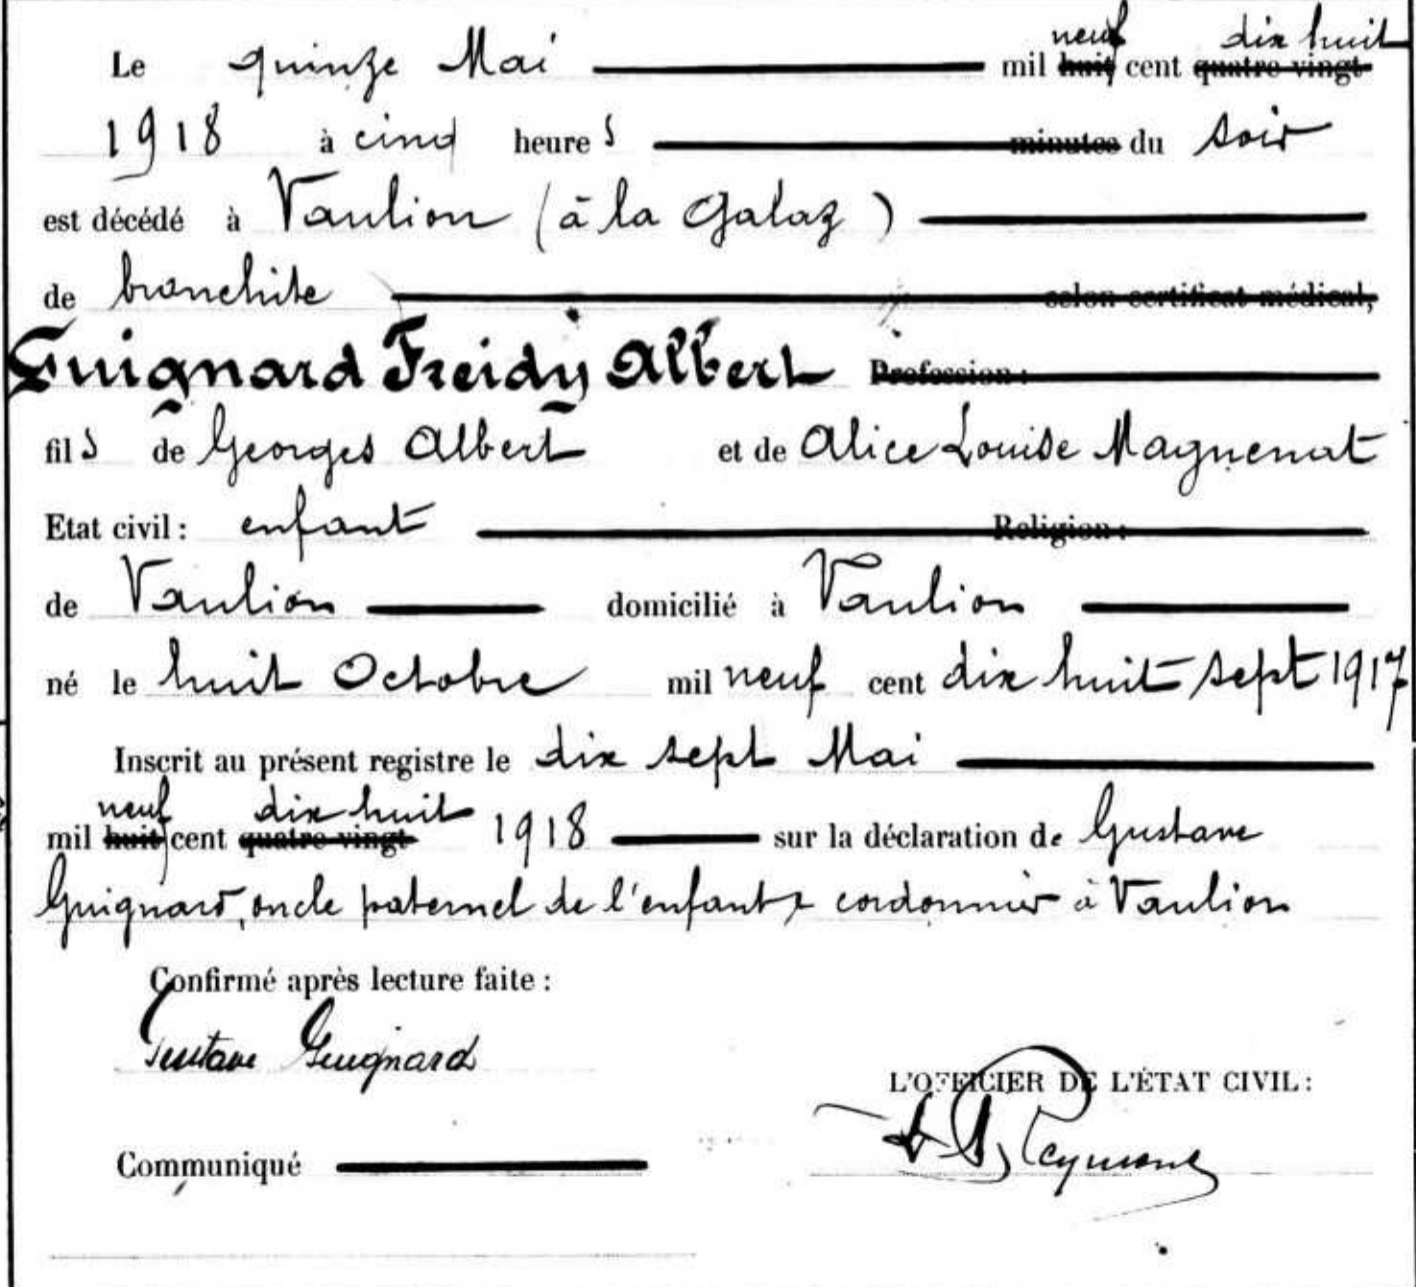 neuf dix huit
Le quinze Mai mil huit cent quatre-vingt
1918 à cinq heures minutes du soir
est décédé à Vaulion (à la Galaz)
de bronchite selon certificat médical,
Guignard Freidy Albert Profession:
fils de Georges Albert et de Alice Louise Magnenat
Etat civil: enfant Religion:
de Vaulion domicilié à Vaulion
né le huit Octobre mil neuf cent dix huit sept 1917
Inscrit au présent registre le dix sept Mai
neuf dix huit
mil huit cent quatre-vingt 1918 sur la déclaration de Gustave
Guignard, oncle paternel de l'enfant, cordonnier à Vaulion
Confirmé après lecture faite:
Gustave Guignard
L'OFFICIER DE L'ÉTAT CIVIL:
Reymond
Communiqué